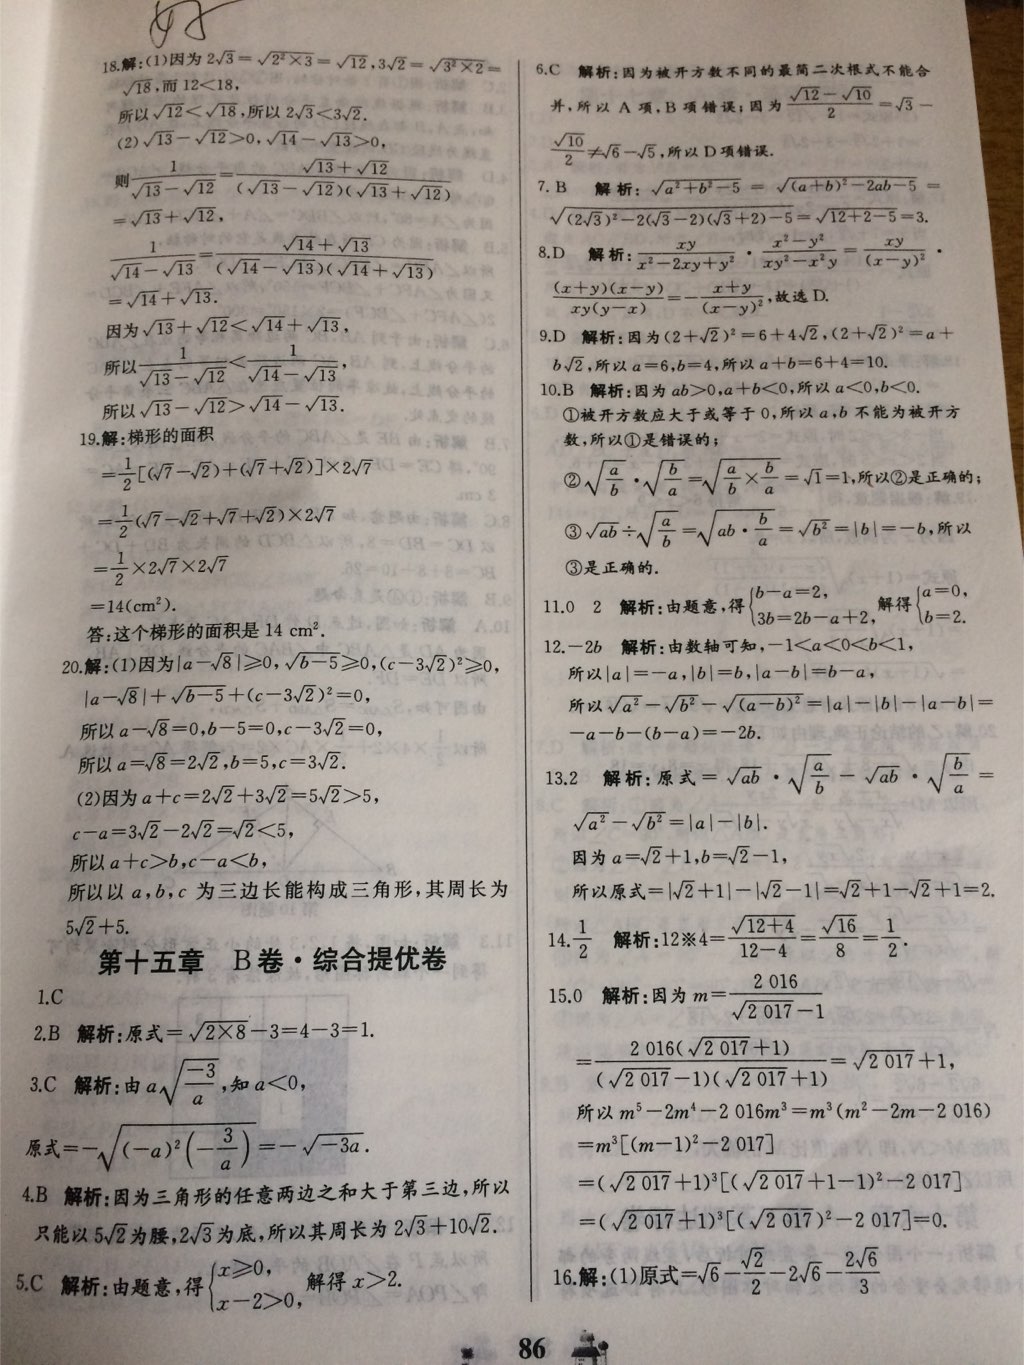 18.解:(1)因为 2√3=√(2²×3)=√12,3√2=√(3²×2)=
√18,而 12<18,
所以√12<√18,所以 2√3<3√2.
(2)√13-√12>0,√14-√13>0,
则 1/(√13-√12)=(√13+√12)/((√13-√12)(√13+√12))
=√13+√12,
1/(√14-√13)=(√14+√13)/((√14-√13)(√14+√13))
=√14+√13.
因为√13+√12<√14+√13,
所以 1/(√13-√12)<1/(√14-√13),
所以√13-√12>√14-√13.
19.解:梯形的面积
=1/2[(√7-√2)+(√7+√2)]×2√7
=1/2(√7-√2+√7+√2)×2√7
=1/2×2√7×2√7
=14(cm²).
答:这个梯形的面积是 14 cm².
20.解:(1)因为|a-√8|≥0,√(b-5)≥0,(c-3√2)²≥0,
|a-√8|+√(b-5)+(c-3√2)²=0,
所以 a-√8=0,b-5=0,c-3√2=0,
所以 a=√8=2√2,b=5,c=3√2.
(2)因为 a+c=2√2+3√2=5√2>5,
c-a=3√2-2√2=√2<5,
所以 a+c>b,c-a<b,
所以以 a,b,c 为三边长能构成三角形,其周长为
5√2+5.
第十五章 B卷·综合提优卷
1.C
2.B 解析:原式=√(2×8)-3=4-3=1.
3.C 解析:由 a√(-3/a),知 a<0,
原式=-√((-a)²(-3/a))=-√(-3a).
4.B 解析:因为三角形的任意两边之和大于第三边,所以
只能以 5√2为腰,2√3为底,所以其周长为 2√3+10√2.
5.C 解析:由题意,得{x≥0, x-2>0, 解得 x>2.
6.C 解析:因为被开方数不同的最简二次根式不能合
并,所以 A 项,B 项错误;因为(√12-√10)/2=√3-
√10/2≠√6-√5,所以 D 项错误.
7.B 解析:√(a²+b²-5)=√((a+b)²-2ab-5)=
√((2√3)²-2(√3-2)(√3+2)-5)=√(12+2-5)=3.
8.D 解析:xy/(x²-2xy+y²)·(x²-y²)/(xy²-x²y)=xy/(x-y)²·
(x+y)(x-y)/(xy(y-x))=-(x+y)/(x-y)²,故选 D.
9.D 解析:因为(2+√2)²=6+4√2,(2+√2)²=a+
b√2,所以 a=6,b=4,所以 a+b=6+4=10.
10.B 解析:因为 ab>0,a+b<0,所以 a<0,b<0.
①被开方数应大于或等于 0,所以 a,b 不能为被开方
数,所以①是错误的;
②√(a/b)·√(b/a)=√(a/b×b/a)=√1=1,所以②是正确的;
③√ab÷√(a/b)=√(ab·b/a)=√b²=|b|=-b,所以
③是正确的.
11.0 2 解析:由题意,得{b-a=2, 3b=2b-a+2, 解得{a=0, b=2.
12.-2b 解析:由数轴可知,-1<a<0<b<1,
所以|a|=-a,|b|=b,|a-b|=b-a,
所以√a²-√b²-√((a-b)²)=|a|-|b|-|a-b|=
-a-b-(b-a)=-2b.
13.2 解析:原式=√ab·√(a/b)-√ab·√(b/a)=
√a²-√b²=|a|-|b|.
因为 a=√2+1,b=√2-1,
所以原式=|√2+1|-|√2-1|=√2+1-√2+1=2.
14.1/2 解析:12※4=√(12+4)/(12-4)=√16/8=1/2.
15.0 解析:因为 m=2 016/(√2 017-1)
=2 016(√2 017+1)/((√2 017-1)(√2 017+1))=√2 017+1,
所以 m⁵-2m⁴-2 016m³=m³(m²-2m-2 016)
=m³[(m-1)²-2 017]
=(√2 017+1)³[(√2 017+1-1)²-2 017]
=(√2 017+1)³[(√2 017)²-2 017]=0.
16.解:(1)原式=√6-√2/2-2√6-2√6/3
86